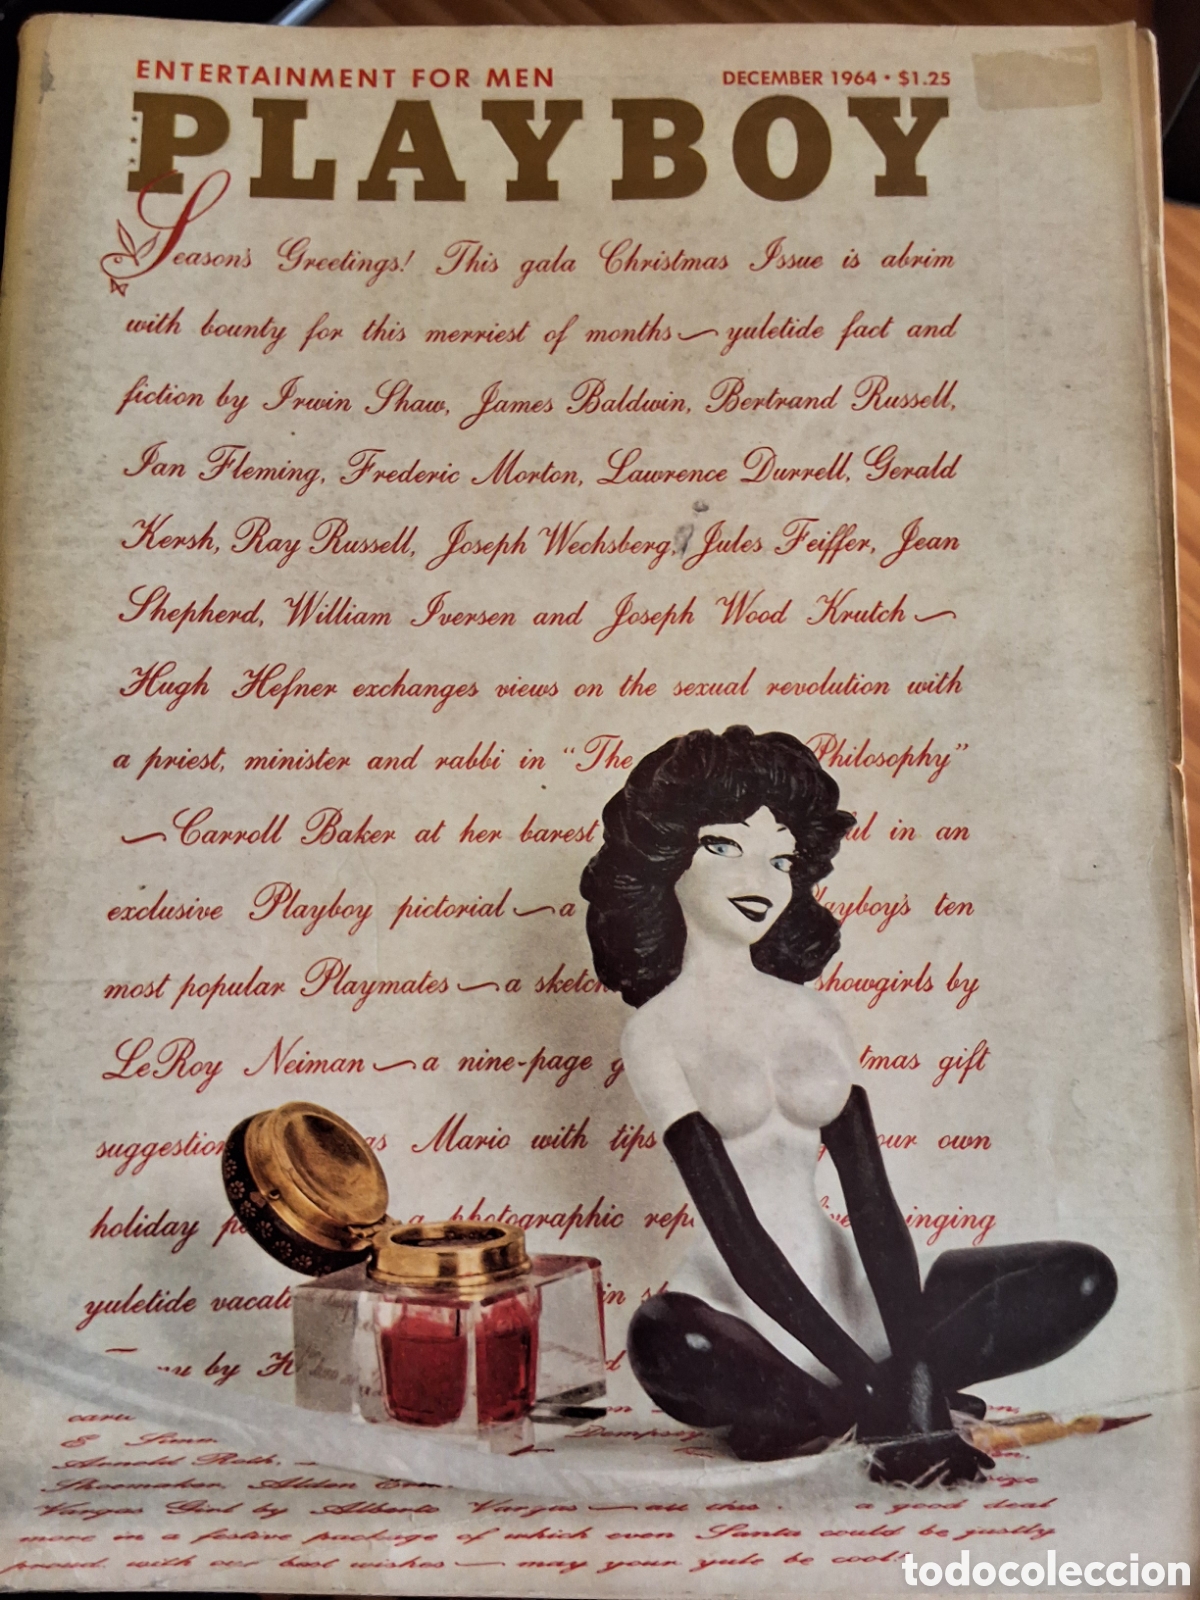 ENTERTAINMENT FOR MEN
DECEMBER 1964 • $1.25
PLAYBOY
Season's Greetings! This gala Christmas Issue is abrim
with bounty for this merriest of months — yuletide fact and
fiction by Irwin Shaw, James Baldwin, Bertrand Russell,
Ian Fleming, Frederic Morton, Lawrence Durrell, Gerald
Kersh, Ray Russell, Joseph Wechsberg, Jules Feiffer, Jean
Shepherd, William Iversen and Joseph Wood Krutch —
Hugh Hefner exchanges views on the sexual revolution with
a priest, minister and rabbi in "The Philosophy"
— Carroll Baker at her barest in an
exclusive Playboy pictorial — a layboy's ten
most popular Playmates — a sketch showgirls by
LeRoy Neiman — a nine-page tmas gift
suggestion as Mario with tips our own
holiday a photographic inging
yuletide in
by
Dempsey
Arnold Roth, —
Shoemaker, Alden
Vargas Girl by Alberto Vargas — all this a good deal
more in a festive package of which even Santa could be justly
proud. with our best wishes — may your yule be cool
todocoleccion